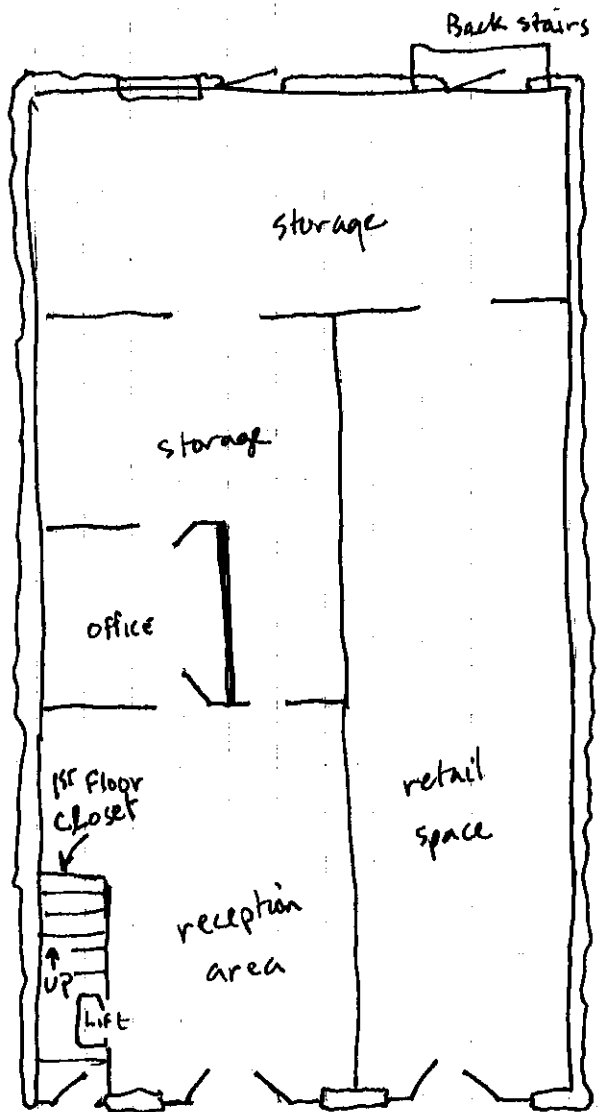 Back stairs
storage
storage
office
1st Floor
Closet
retail
space
reception
area
UP
Lift